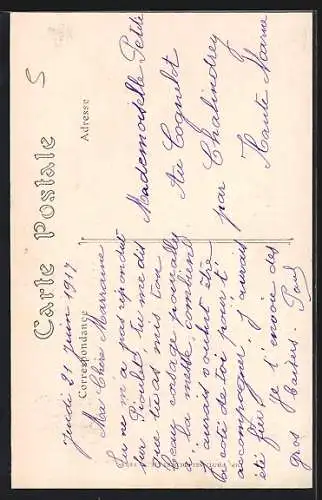 Carte Postale
Correspondance
Adresse
5
jeudi 21 juin 1917
Ma Chère Marraine
Tu ne m'a pas répondut
tu me dis
que tu as mis ton
beau corsage pour aller
à la messe combient
j'aurais voulut être
a coté de toi pour t'
accompagner j'aurais
été fier je t'envoie des
gros baisers. Paul
Mademoiselle Petit
Au Cognelot
par Chalindrey
Haute Marne